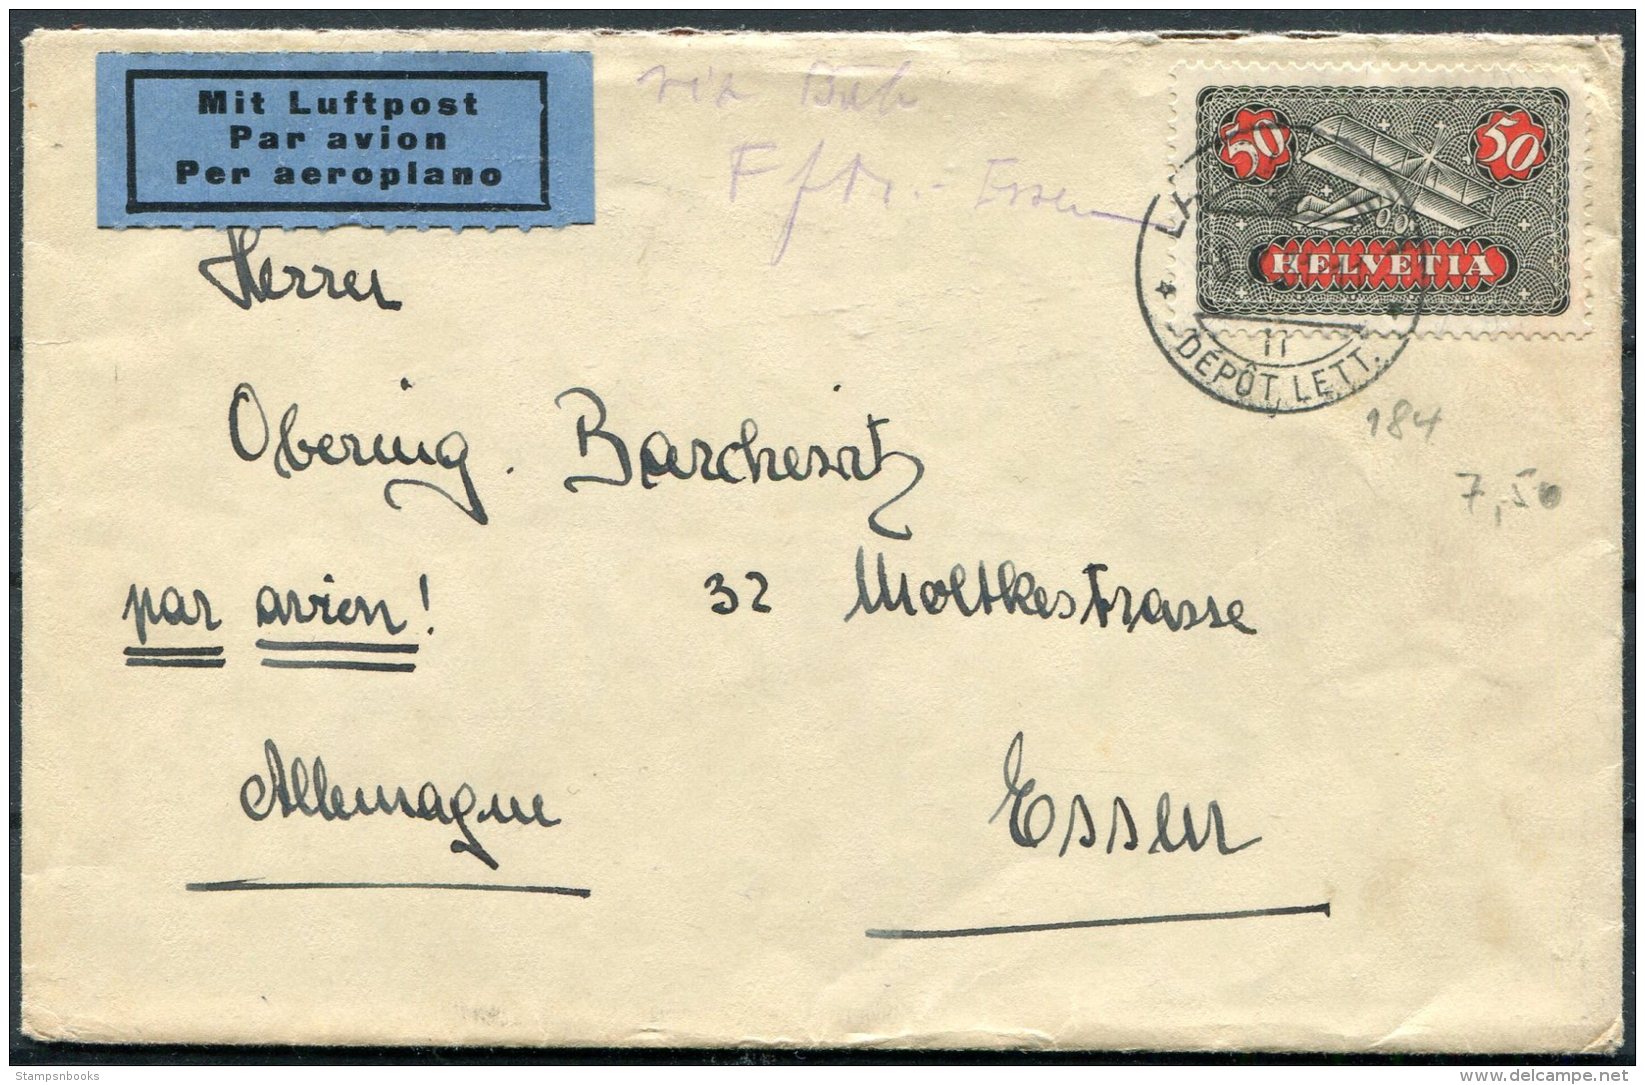 Mit Luftpost
Par avion
Per aeroplano
via
Essen
50 50
HELVETIA
11
DÉPÔT LETT.
184
7,50
Herrn
Obering.
par avion!
32 Moltkestrasse
Allemagne
Essen
Stampsnbooks
delcampe.net